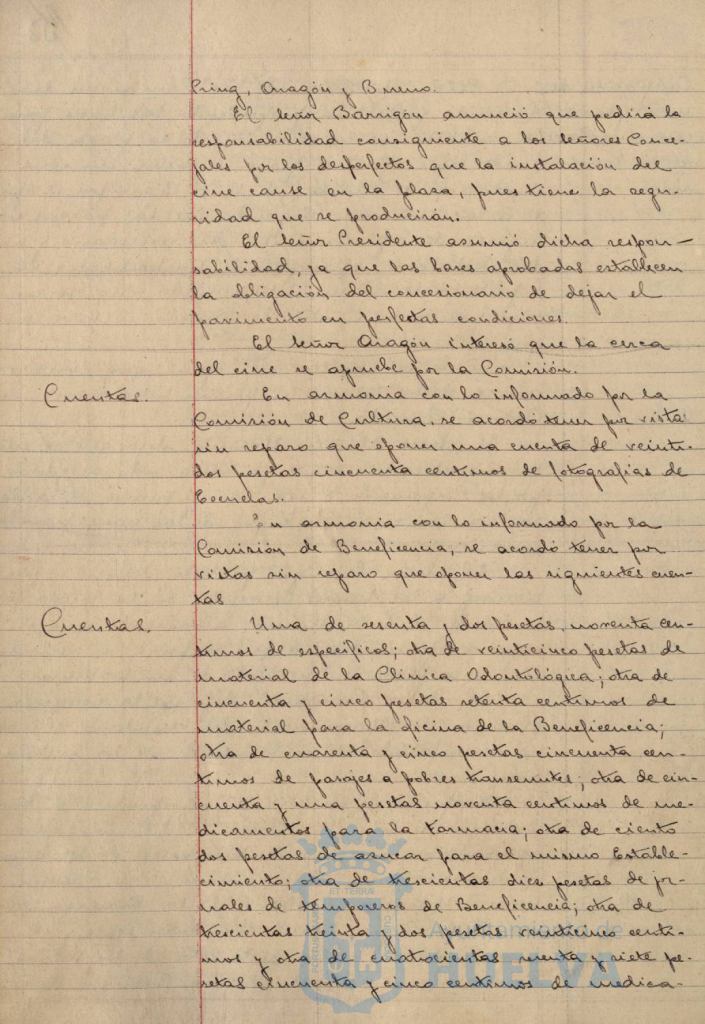 Pring, Aragón y Bueno.
El señor Barrigón anunció que pedirá la
responsabilidad consiguiente a los señores Conce-
jales por los desperfectos que la instalación del
cine cause en la plaza, pues tiene la segu-
ridad que se producirán.
El señor Presidente asumió dicha respon-
sabilidad, ya que las bases aprobadas establecen
la obligación del concesionario de dejar el
pavimento en perfectas condiciones.
El señor Aragón interesó que la cerca
del cine se apruebe por la Comisión.
Cuentas.
En armonia con lo informado por la
Comisión de Cultura, se acordó tener por vista
sin reparo que oponer una cuenta de veinti-
dos pesetas cincuenta centimos de fotografias de
Escuelas.
En armonia con lo informado por la
Comisión de Beneficencia, se acordó tener por
vistas sin reparo que oponer las siguientes cuen-
tas
Cuentas.
Una de sesenta y dos pesetas, noventa cen-
timos de específicos; otra de veinticinco pesetas de
material de la Clinica Odontológica; otra de
cincuenta y cinco pesetas setenta centimos de
material para la oficina de la Beneficencia;
otra de cuarenta y cinco pesetas cincuenta cen-
timos de pasajes a pobres transeuntes; otra de cin-
cuenta y una pesetas noventa centimos de me-
dicamentos para la Farmacia; otra de ciento
dos pesetas de azucar para el mismo Estable-
cimiento; otra de trescientas diez pesetas de jor-
nales de temporeros de Beneficencia; otra de
trescientas treinta y dos pesetas veinticinco centi-
mos y otra de cuatrocientas y siete pe-
setas cincuenta y cinco centimos de medica-
HUELVA